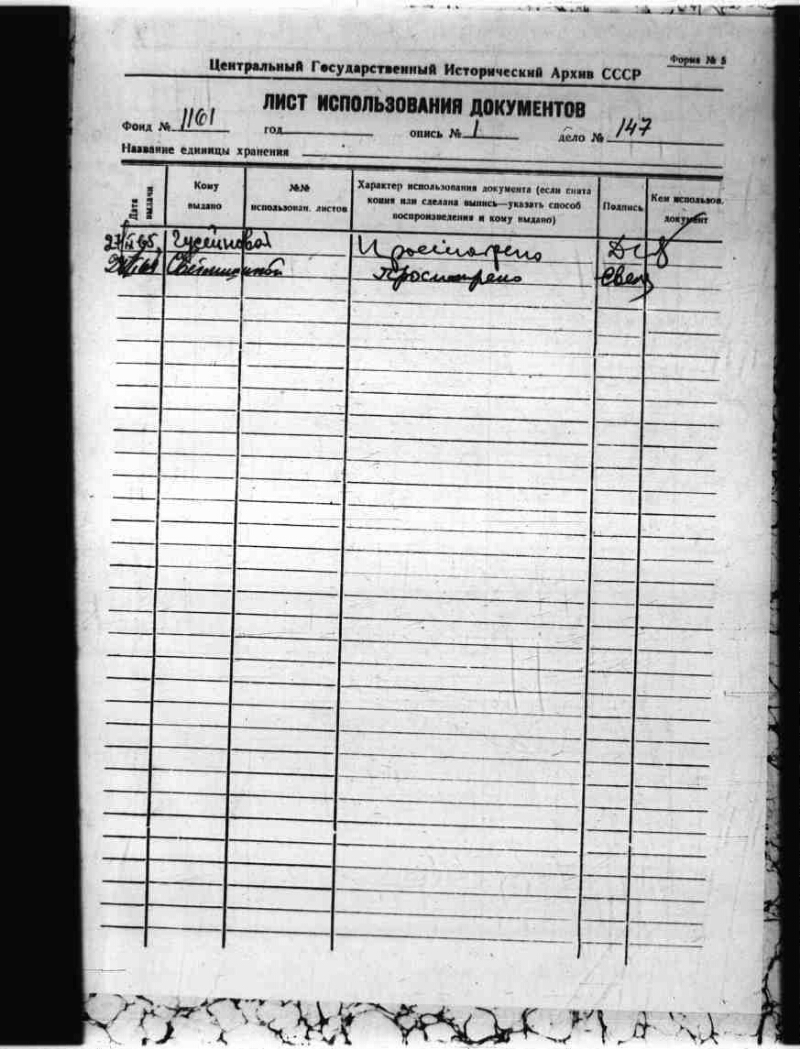 Форма № 5
Центральный Государственный Исторический Архив СССР
ЛИСТ ИСПОЛЬЗОВАНИЯ ДОКУМЕНТОВ
Фонд № 1161 год опись № 1 дело № 147
Название единицы хранения
Дата выдачи
Кому выдано
№№ использован. листов
Характер использования документа (если снята
копия или сделана выпись—указать способ
воспроизведения и кому выдано)
Подпись
Кем использов. документ
Гусейновой Просмотрено
Просмотрено